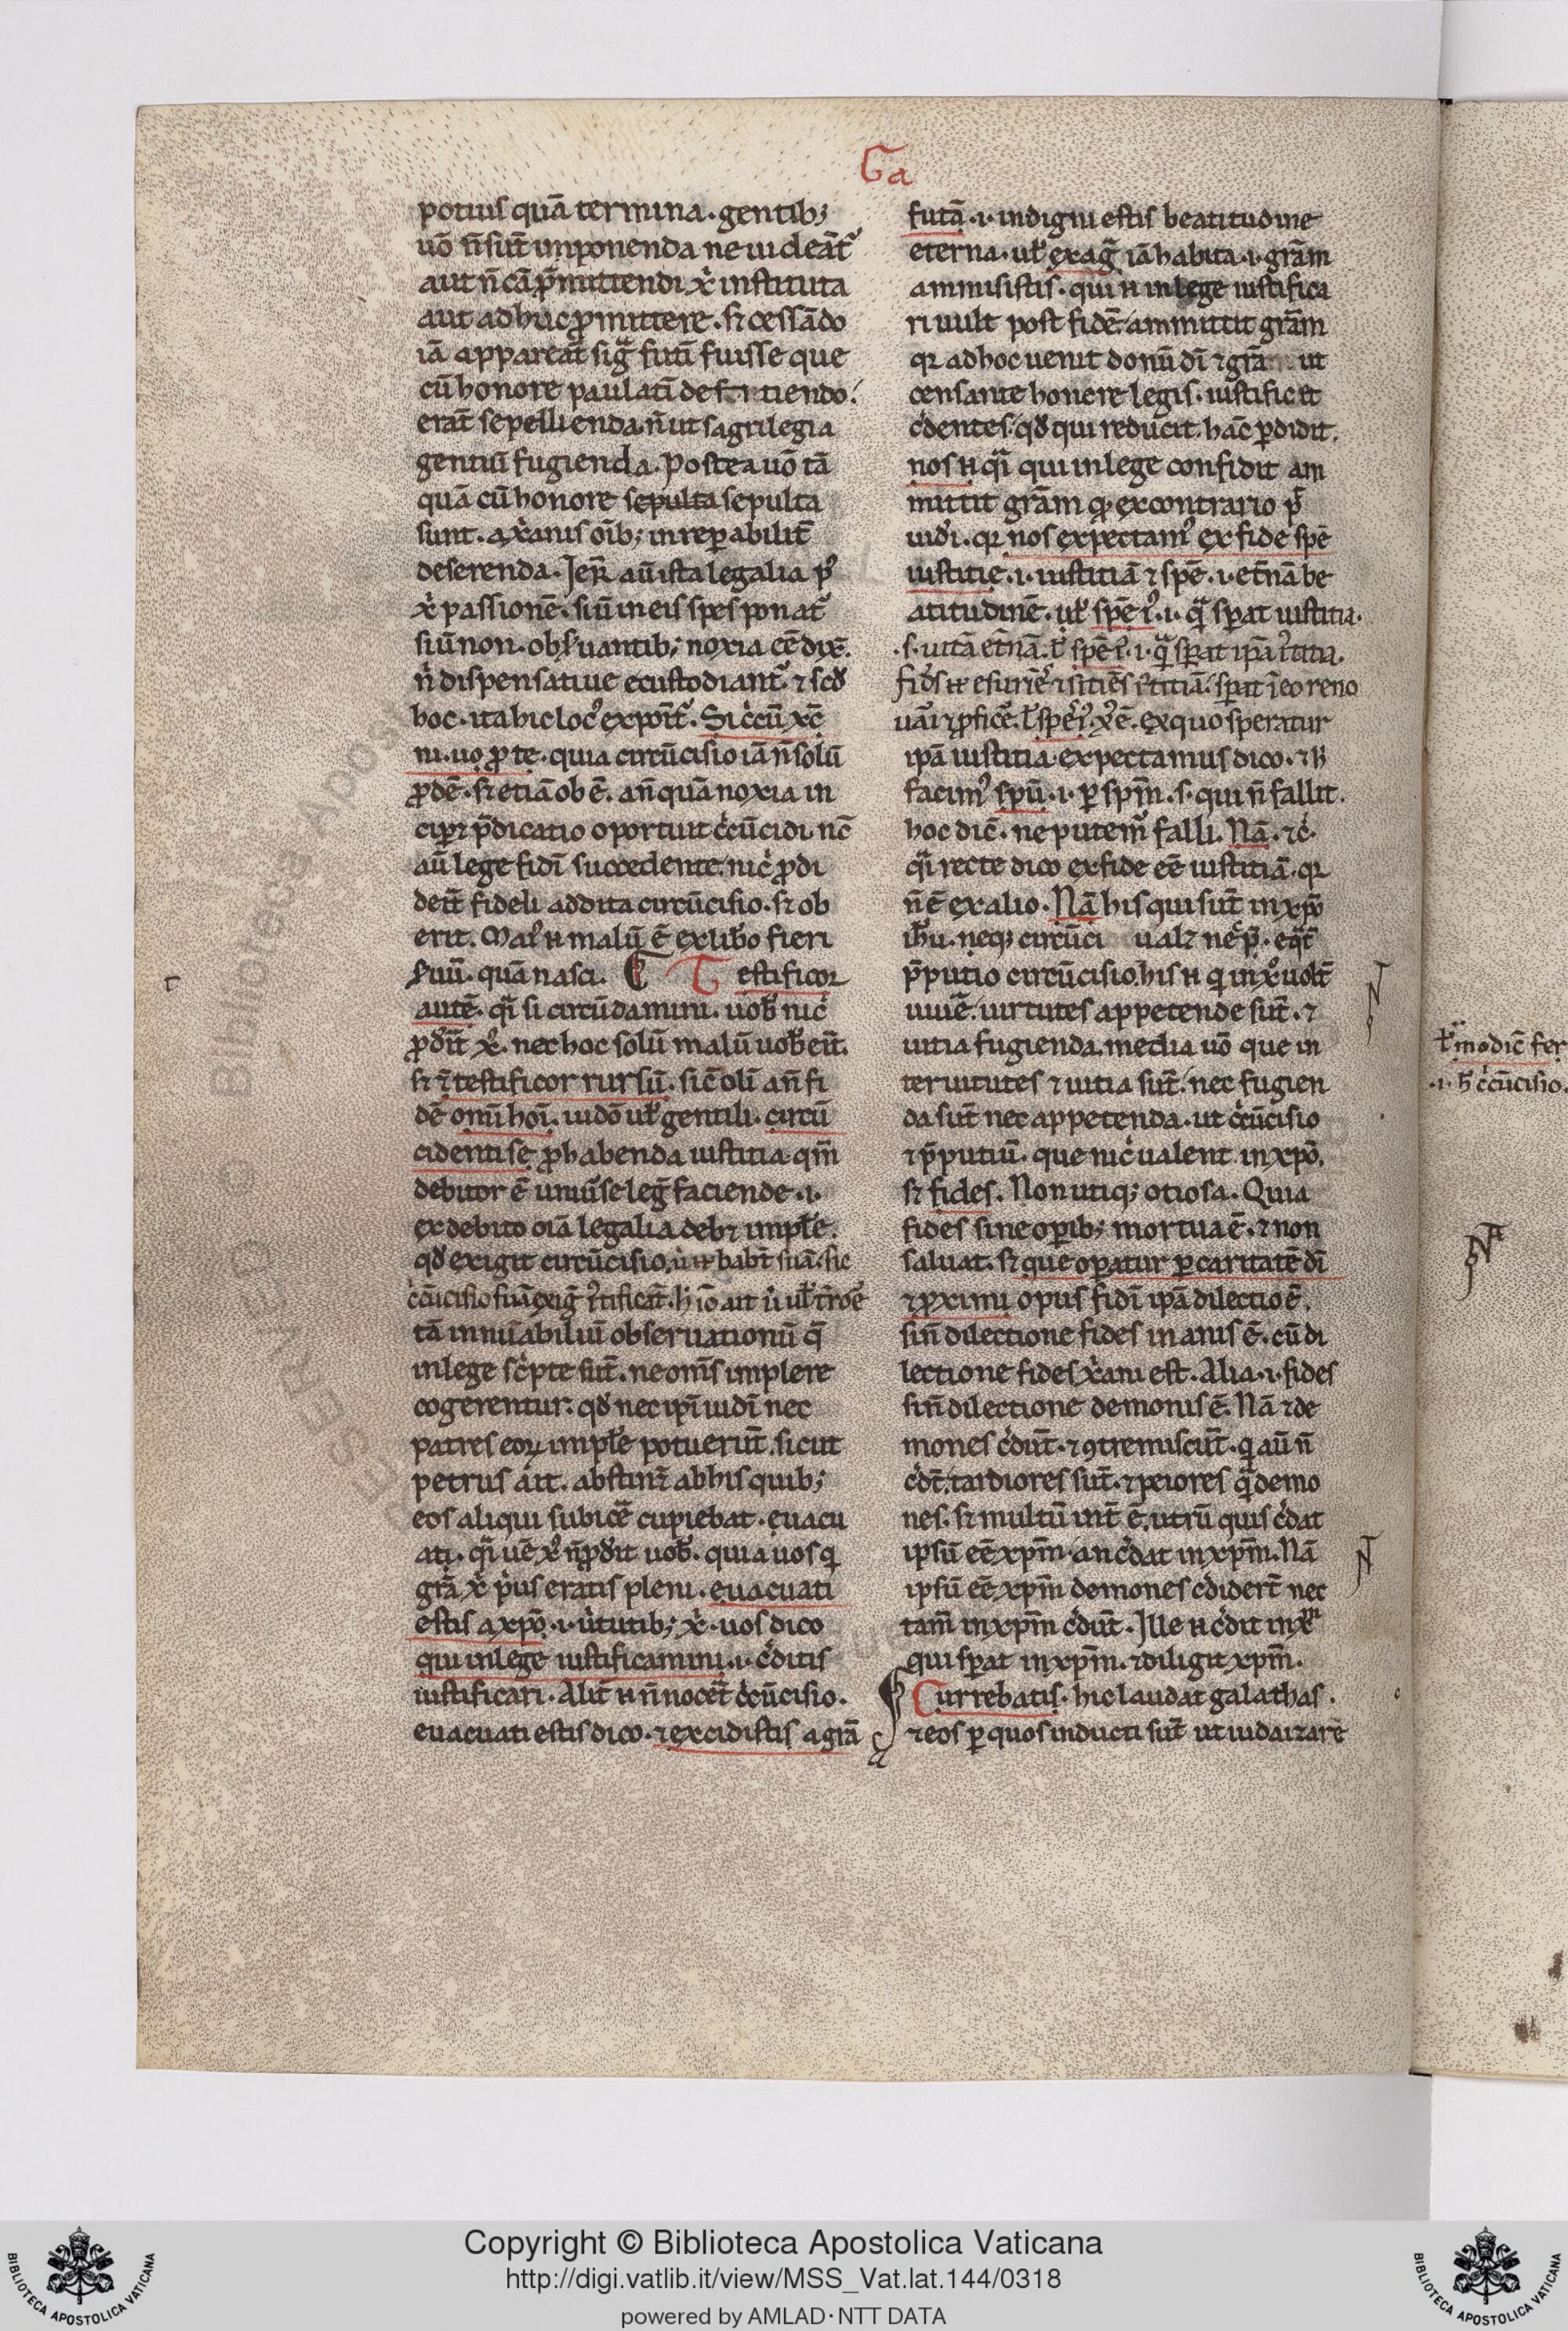 Ga
potius quā termina. gentib;
uō n̄ sūt inponenda ne uideāt᷑
aut n̄ cā p̄mittendi xͥ instituta
aut adhuc ꝓmittere. sꝫ cessādo
iā appareāt sigͣ futī fuisse que
cū honore paulatī
erāt sepellienda. n̄ ut sagrilegia
gentiū fugienda. Postea uō tā
quā cū honore sepulta sepulta
sunt. a xͥanis oīb; inreꝑabilit̄
deserenda. Ier̄ aū ista legalia pꝰ
xͥ passionē. siū in eis spes ponat᷑
siū non. obs̓uantib; noxia eē dix̄.
n̄ dispensatiue custodiant᷑. ⁊ scd̓
hoc. ita hic locꝰ exponit᷑. Si cͥcū xͨ
ni. uo ꝓte. quia circūcisio iā n̄ solū
ꝓdē. sꝫ etiā ob ē. an̄ quā noxia in
cipꝫ p̄dicatio oportuit cͥcūcidi. nc̄
aū lege fidī succedente. nicͥ ꝓdi
derit fideli addita circūcisio. sꝫ ob
erit. Maiꝰ n̄ malū ē ex lib̓o fieri
s̓uū. quā nasci. T estificor
autē. qͣi si circūdamini. uob̓ nicͥ
ꝓd̓it xͨ. nec hoc solū malū uob̓ erit.
sꝫ ⁊ testificor rursū. sic̄ olī an̄ fi
dē omī hoī. iudō ul̓ gentili. circū
cidenti se ꝓ habenda iustitia qm̄
debitor ē uniūse leḡ faciende .i.
ex debito oīa legalia debꝫ imple̓.
qd̓ exigit circūcisio,
tā innūabiliū obseruationū q̄
in lege scͥpte sūt. ne omīs implere
cogerentur. qd̓ nec ipī iudī nec
patres eoꝝ imple̓ potuerūt. sicut
petrus ait. abstinꝫ ab his quib;
eos aliqui subicē cupiebat. euacu
ati. qͣi ue̓ xꝰ n̄ ꝓd̓it uob̓. quia uos qͥ
grā xͥ pͥus eratis pleni. euacuati
estis a xpō .i. uͥtutib; xͥ. uos dico
qui in lege iustificamini .i. cͥditis
iustificari. Alit̄ n̄ n̄ nocet̄ cͥcūcisio.
euacuati estis dico. ⁊ excidistis a grā
futā .i. indigni estis beatitudine
eterna. ul̓ ex ag̓ iā habita .i. grām
ammisistis. qui n̄ in lege iustifica
ri uult post fidē. ammittit grām
qꝛ ad hoc uenit donū dī ⁊ grā ut
censante honere legis. iustificet
cͥdentes. qd̓ qui reducit. hāc ꝑdidit.
nos n̄ qͣi qui in lege confidit am
mittit grām qꝫ ex contrario p̄
uid̓i. qꝛ nos expectamꝰ ex fide spē
iustitie .i. iustitiā ⁊ spē .i. et̄nā be
atitudinē. ul̓ spē iꝰ .i. qͣ sꝑat iustitia.
.s. uitā et̄nā. ł spē iꝰ .i. qͣ sꝑat ipā
uāi ⁊ ꝓficē. ex quo speratur
ipā iustitia expectamus dico. ⁊ h̓
facimꝰ spū .i. ꝑ spm̄ .s. qui n̄ fallit.
hoc dic̄. ne putemꝰ falli. Nā. ⁊cͥ.
qͣi recte dico ex fide eē iustitiā. qꝛ
n̄ ē ex alio. Nā his qui sūt in xpō
ih̓u. neqꝫ circūci ualꝫ neqꝫ p̄.
p̄putio circūcisio. his n̄ qͥ in xͦ uolt̄
uiuē. uirtutes appetende sūt. ⁊
uitia fugienda. media uō que in
ter uitutes ⁊ uitia sūt. nec fugien
da sūt nec appetenda. ut cͥcūcisio
⁊ p̄putiū. que nicͥ ualent in xpō.
sꝫ fides. Non utiqꝫ otiosa. Quia
fides sine oꝑib; mortua ē. ⁊ non
saluat. sꝫ que oꝑatur ꝑ caritatē dī
⁊ ꝓximi opus fidī ipā dilectio ē.
sin̄ dilectione fides inanis ē. cū di
lectione fides xͥani est. Alia .i. fides
sin̄ dilectione demonis ē. Nā ⁊ de
mones cͥdūt. ⁊ ꝯtremiscūt. qͥ aū n̄
cͥdt̄. tardiores sūt. ⁊ peiores qͣ demo
nes. sꝫ multū int̄ ē, utrū quis cͥdat
ipsū eē xpm̄. an cͥdat in xpm̄. Nā
ipsū eē xpm̄ demones cͥdidert̄ nec
tam̄ in xpm̄ cͥdūt. Ille n̄ cͥdit in xͫ
qui sꝑat in xpm̄. ⁊ diligit xpm̄.
Currebatis. hic laudat galathas.
⁊ eos ꝑ quos inducti sūt ut iudaizarē
.i. h̓ cͥcūcisio.
BIBLIOTECA APOSTOLICA VATICANA
Copyright © Biblioteca Apostolica Vaticana
http://digi.vatlib.it/view/MSS_Vat.lat.144/0318
powered by AMLAD·NTT DATA
BIBLIOTECA APOSTOLICA VATICANA